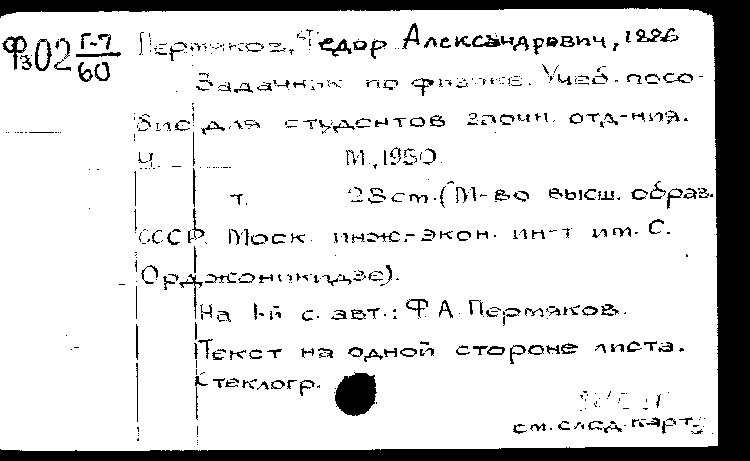 Ф3 02 Г-7/60
Пермяков, Федор Александрович, 1886
Задачник по физике. Учеб. посо-
бие для студентов заочн. отд-ния.
Ч. М., 1950.
т. 28 cm. (М-во высш. образ.
СССР. Моск. инж.-экон. ин-т им. С.
Орджоникидзе).
На 1-й с. авт.: Ф. А. Пермяков.
Текст на одной стороне листа.
Стеклогр.
см. след. карт.